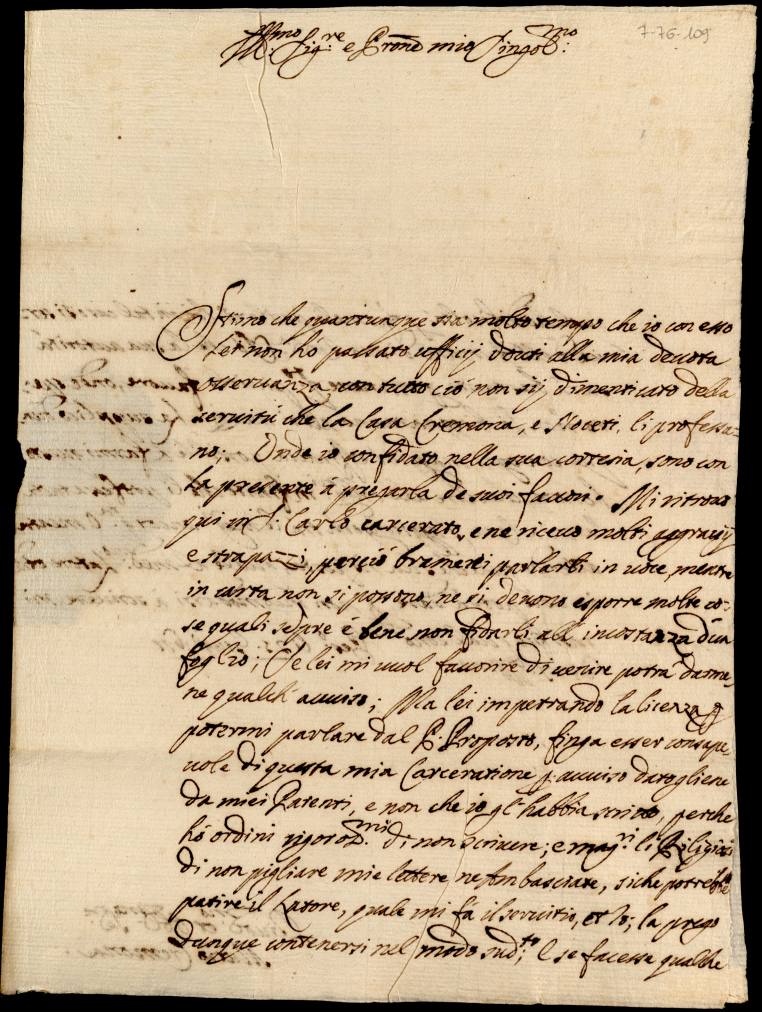 7-76-109
Ill.mo Sig.re e Pron mio Singol.mo
Stimo che quantunque sia molto tempo che io con esso
lei non hó passato ufficij douti alla mia deuota
osseruanza con tutto ció non sij dimenticato della
seruitù che la Casa Cremona, e Noceti, li professa=
no; Onde io confidato nella sua cortesia, sono con
la presente á pregarla de suoi fauori. Mi ritrouo
qui in S. Carlo carcerato, e ne riceuo molti aggrauij
e strapazzi, perció bramerei parlarli in uoce, mentre
in carta non si possono, ne si deuono esporre molte co=
se quali sepre é bene non fidarli all' incostanza d'un
foglio; Se lei mi uuol fauorire di uenire potrá darme
ne qualch auuiso; Ma lei impetrando la licenza p
potermi parlare dal P. Proposto, finga esser consape
uole di questa mia Carceratione p. auuiso datogliene
da miei Parenti, e non che io gl' habbia scritto, perche
hó ordini rigoros.mi di non scriuere; e mag.ri li Religiosi
di non pigliare mie lettere, ne Ambasciate, siche potrebbe
patire il Latore, quale mi fá il seruitio, et Io; la prego
dunque contenersi nel modo sud.to; E se facesse qualche